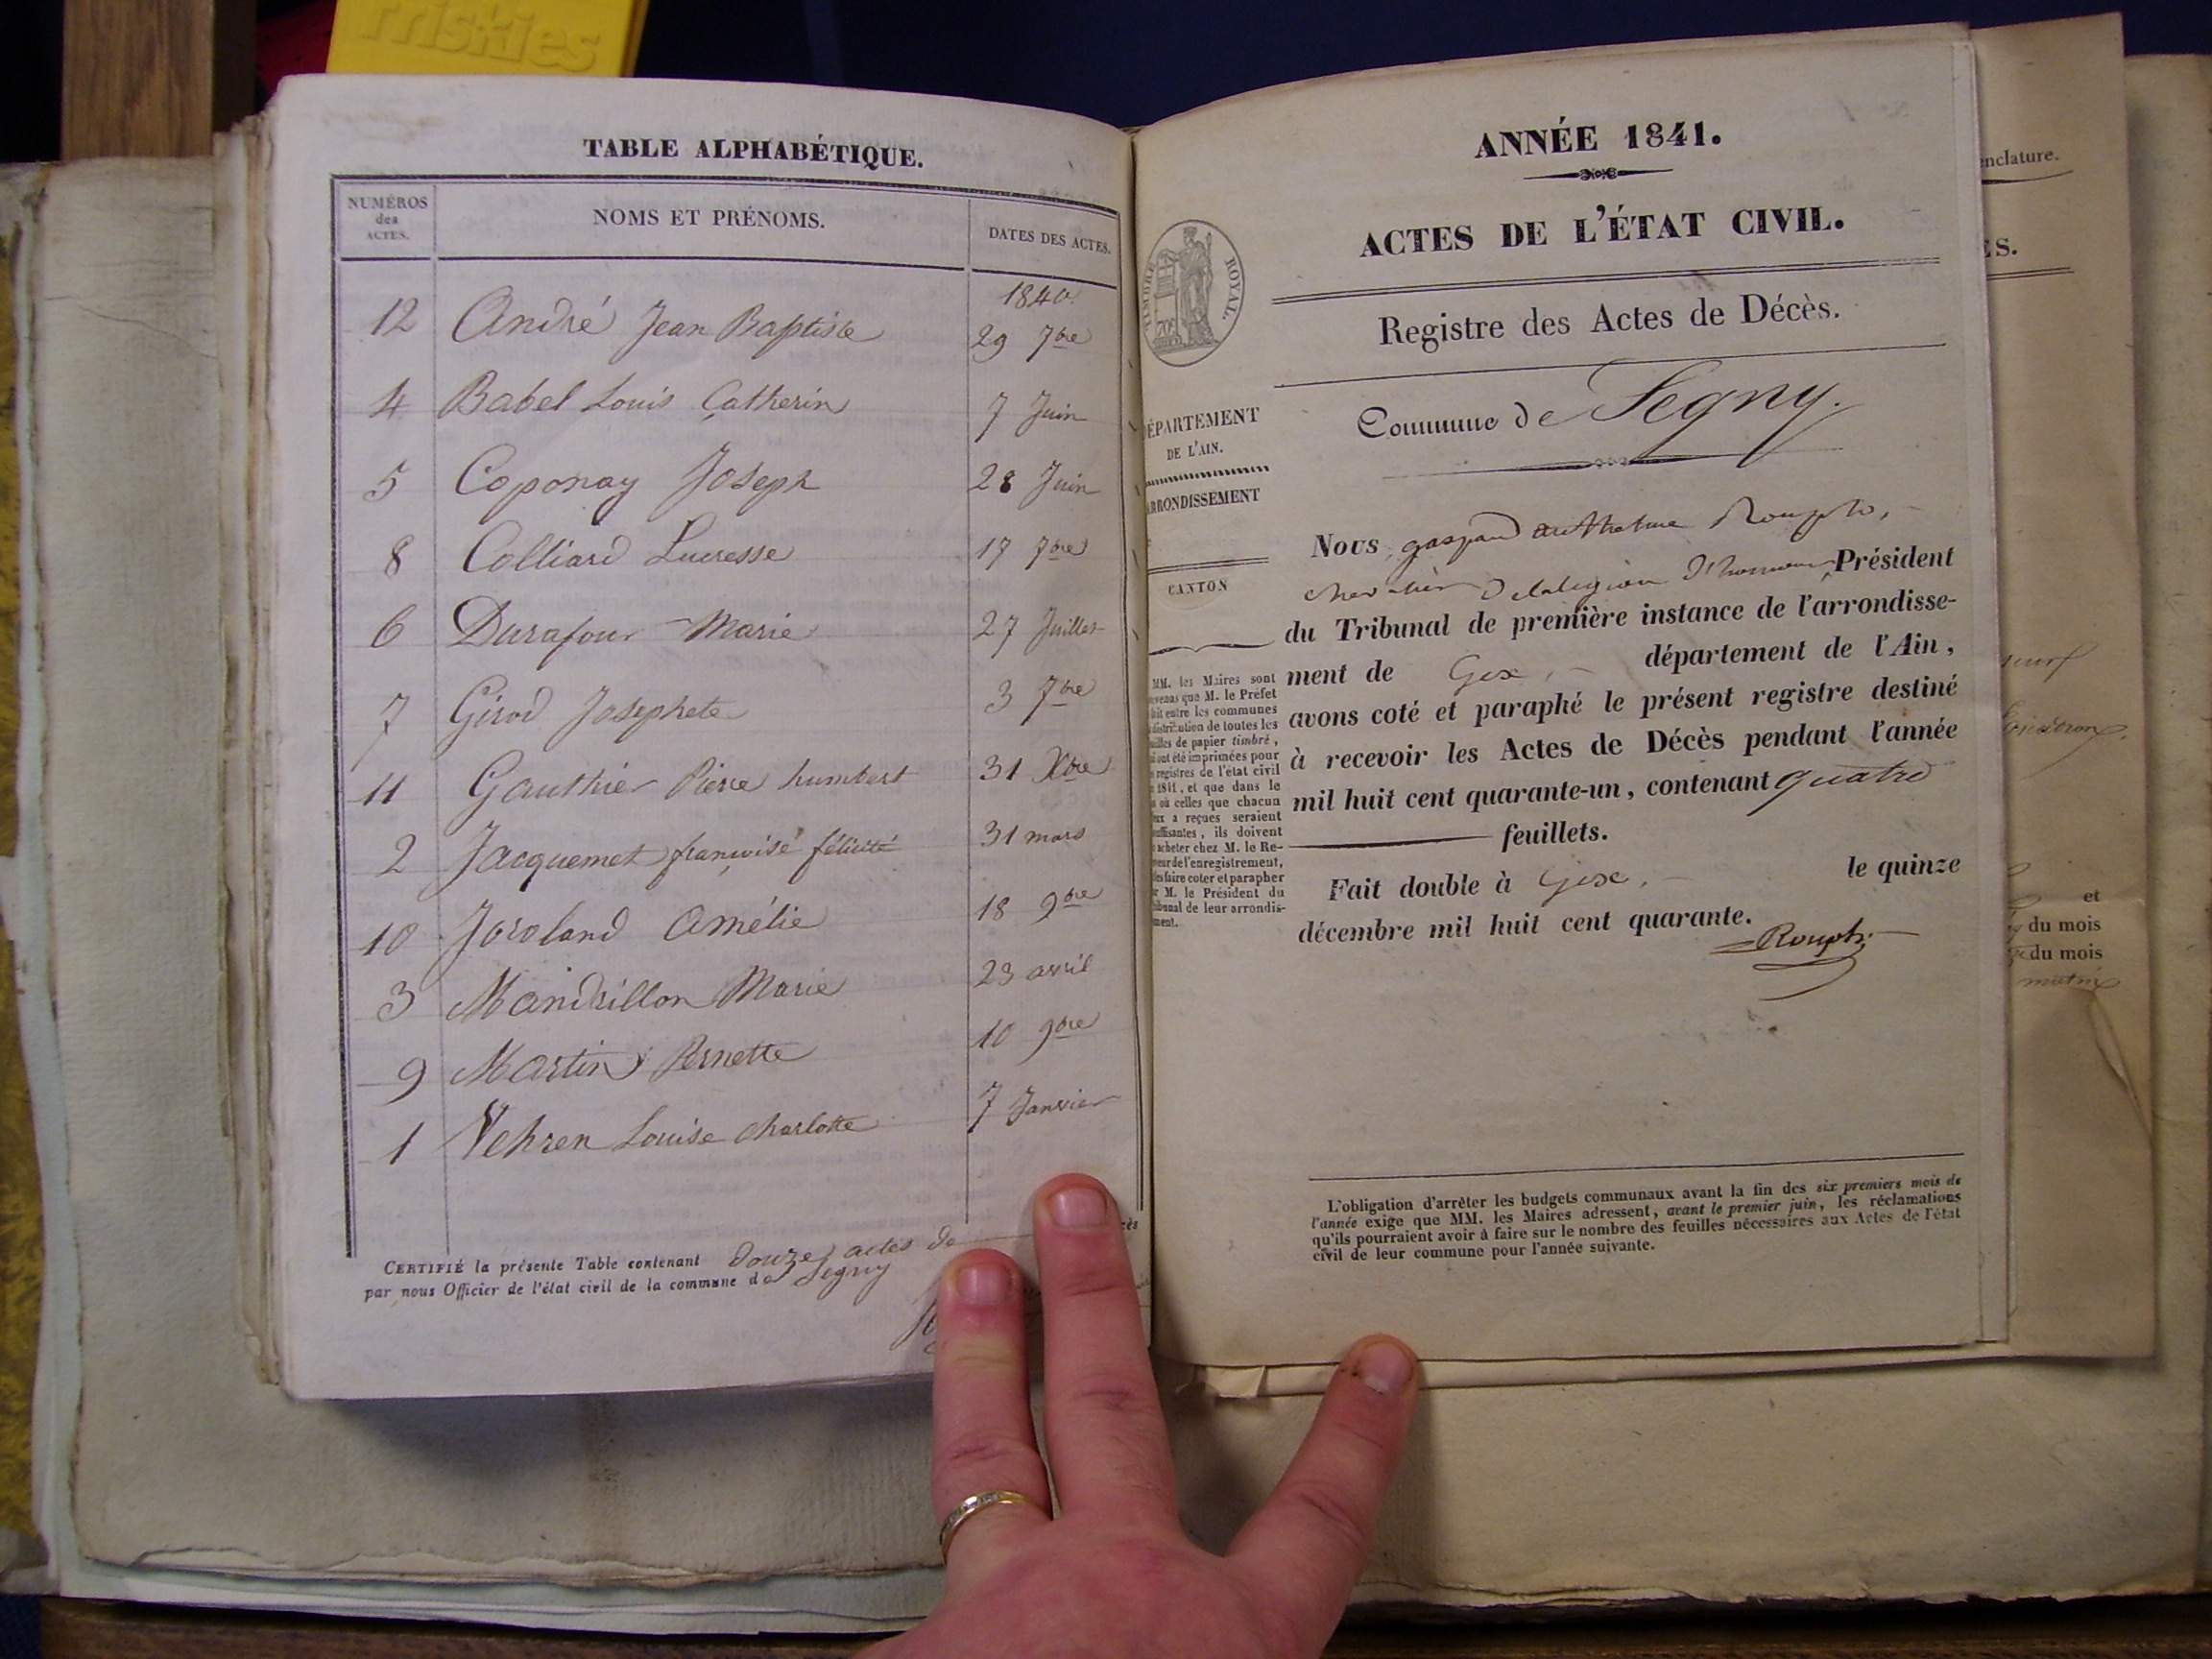 friskies
TABLE ALPHABÉTIQUE.
NUMÉROS
des
ACTES.
NOMS ET PRÉNOMS.
DATES DES ACTES.
1840
12 André Jean Baptiste 29 7bre
4 Babel Louis Catherin 7 Juin
5 Coponay Joseph 28 Juin
8 Colliard Lucresse 17 7bre
6 Durafour Marie 27 Juillet
7 Girod Josephete 3 7bre
11 Gauthier Pierre humbert 31 Xbre
2 Jacquemet françoise félicité 31 mars
10 Joroland Amélie 18 9bre
3 Mandrillon Marie 23 avril
9 Martin Pernette 10 9bre
1 Vehren Louise charlotte 7 Janvier
CERTIFIÉ la présente Table contenant douze actes de
par nous Officier de l'état civil de la commune de Segny
ANNÉE 1841.
ACTES DE L'ÉTAT CIVIL.
TIMBRE ROYAL.
Registre des Actes de Décès.
Commune de Segny.
DÉPARTEMENT
DE L'AIN.
ARRONDISSEMENT
CANTON
Nous, gaspard Rouph,
chevalier de la legion d'honneur, Président
du Tribunal de première instance de l'arrondisse-
ment de Gex, département de l'Ain,
avons coté et paraphé le présent registre destiné
à recevoir les Actes de Décès pendant l'année
mil huit cent quarante-un, contenant quatre
feuillets.
Fait double à Gex, le quinze
décembre mil huit cent quarante.
MM. les Maires sont
que M. le Préfet
entre les communes
distribution de toutes les
de papier timbré,
ont été imprimées pour
registres de l'état civil
1841, et que dans le
où celles que chacun
a reçues seraient
, ils doivent
acheter chez M. le Re-
de l'enregistrement,
les faire coter et parapher
M. le Président du
de leur arrondis-
L'obligation d'arrêter les budgets communaux avant la fin des six premiers mois de
l'année exige que MM. les Maires adressent, avant le premier juin, les réclamations
qu'ils pourraient avoir à faire sur le nombre des feuilles nécessaires aux Actes de l'état
civil de leur commune pour l'année suivante.
nclature.
ES.
et
du mois
du mois